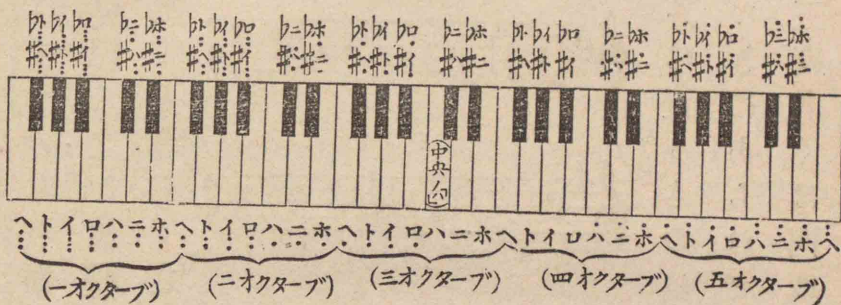 ♭ト ♭イ ♭ロ ♭ニ ♭ホ ♭ト ♭イ ♭ロ ♭ニ ♭ホ ♭ト ♭イ ♭ロ ♭ニ ♭ホ ♭ト ♭イ ♭ロ ♭ニ ♭ホ ♭ト ♭イ ♭ロ ♭ニ ♭ホ
♯ヘ ♯ト ♯イ ♯ハ ♯ニ ♯ヘ ♯ト ♯イ ♯ハ ♯ニ ♯ヘ ♯ト ♯イ ♯ハ ♯ニ ♯ヘ ♯ト ♯イ ♯ハ ♯ニ ♯ヘ ♯ト ♯イ ♯ハ ♯ニ
(中央ノハ)
ヘトイロハニホヘトイロハニホヘトイロハニホヘトイロハニホヘトイロハニホヘ
(一オクターブ) (二オクターブ) (三オクターブ) (四オクターブ) (五オクターブ)